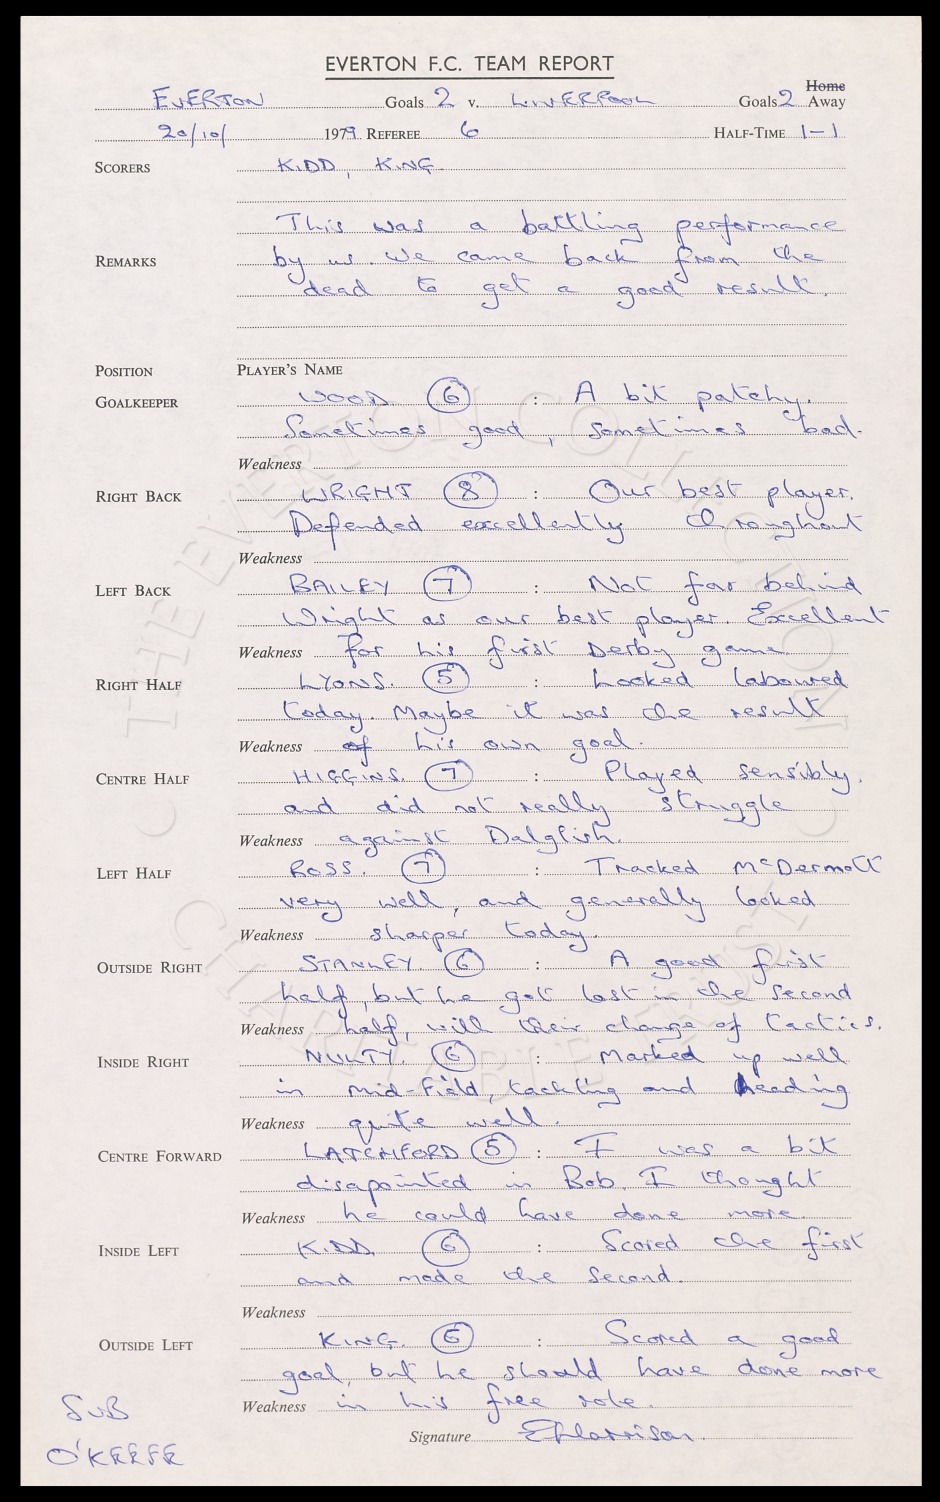 EVERTON F.C. TEAM REPORT
Home
EVERTON Goals 2 v. LIVERPOOL Goals 2 Away
20/10/ 1979. REFEREE 6 HALF-TIME 1-1
SCORERS KIDD, KING
This was a battling performance
REMARKS by us. We came back from the
dead to get a good result.
POSITION PLAYER'S NAME
GOALKEEPER WOOD (6) : A bit patchy.
Sometimes good, sometimes bad.
Weakness
RIGHT BACK WRIGHT (8) : Our best player.
Defended excellently throughout
Weakness
LEFT BACK BAILEY (7) : Not far behind
Wright as our best player. Excellent
Weakness for his first Derby game
RIGHT HALF LYONS. (5) : Looked laboured
today. Maybe it was the result
Weakness of his own goal.
CENTRE HALF HIGGINS. (7) : Played sensibly,
and did not really struggle
Weakness against Dalglish.
LEFT HALF ROSS. (7) : Tracked McDermott
very well, and generally looked
Weakness sharper today.
OUTSIDE RIGHT STANLEY. (6) : A good first
half, but he got lost in the second
Weakness half, with their change of tactics.
INSIDE RIGHT NULTY (6) : Marked up well
in mid-field, tackling and heading
Weakness quite well.
CENTRE FORWARD LATCHFORD (5) : I was a bit
disapointed in Bob. I thought
Weakness he could have done more.
INSIDE LEFT KIDD (6) : Scored the first
and made the second.
Weakness
OUTSIDE LEFT KING. (6) : Scored a good
goal, but he should have done more
Weakness in his free role.
Signature EHarrison.
SUB
O'KEEFE
THE EVERTON COLLECTION
CHARITABLE TRUST